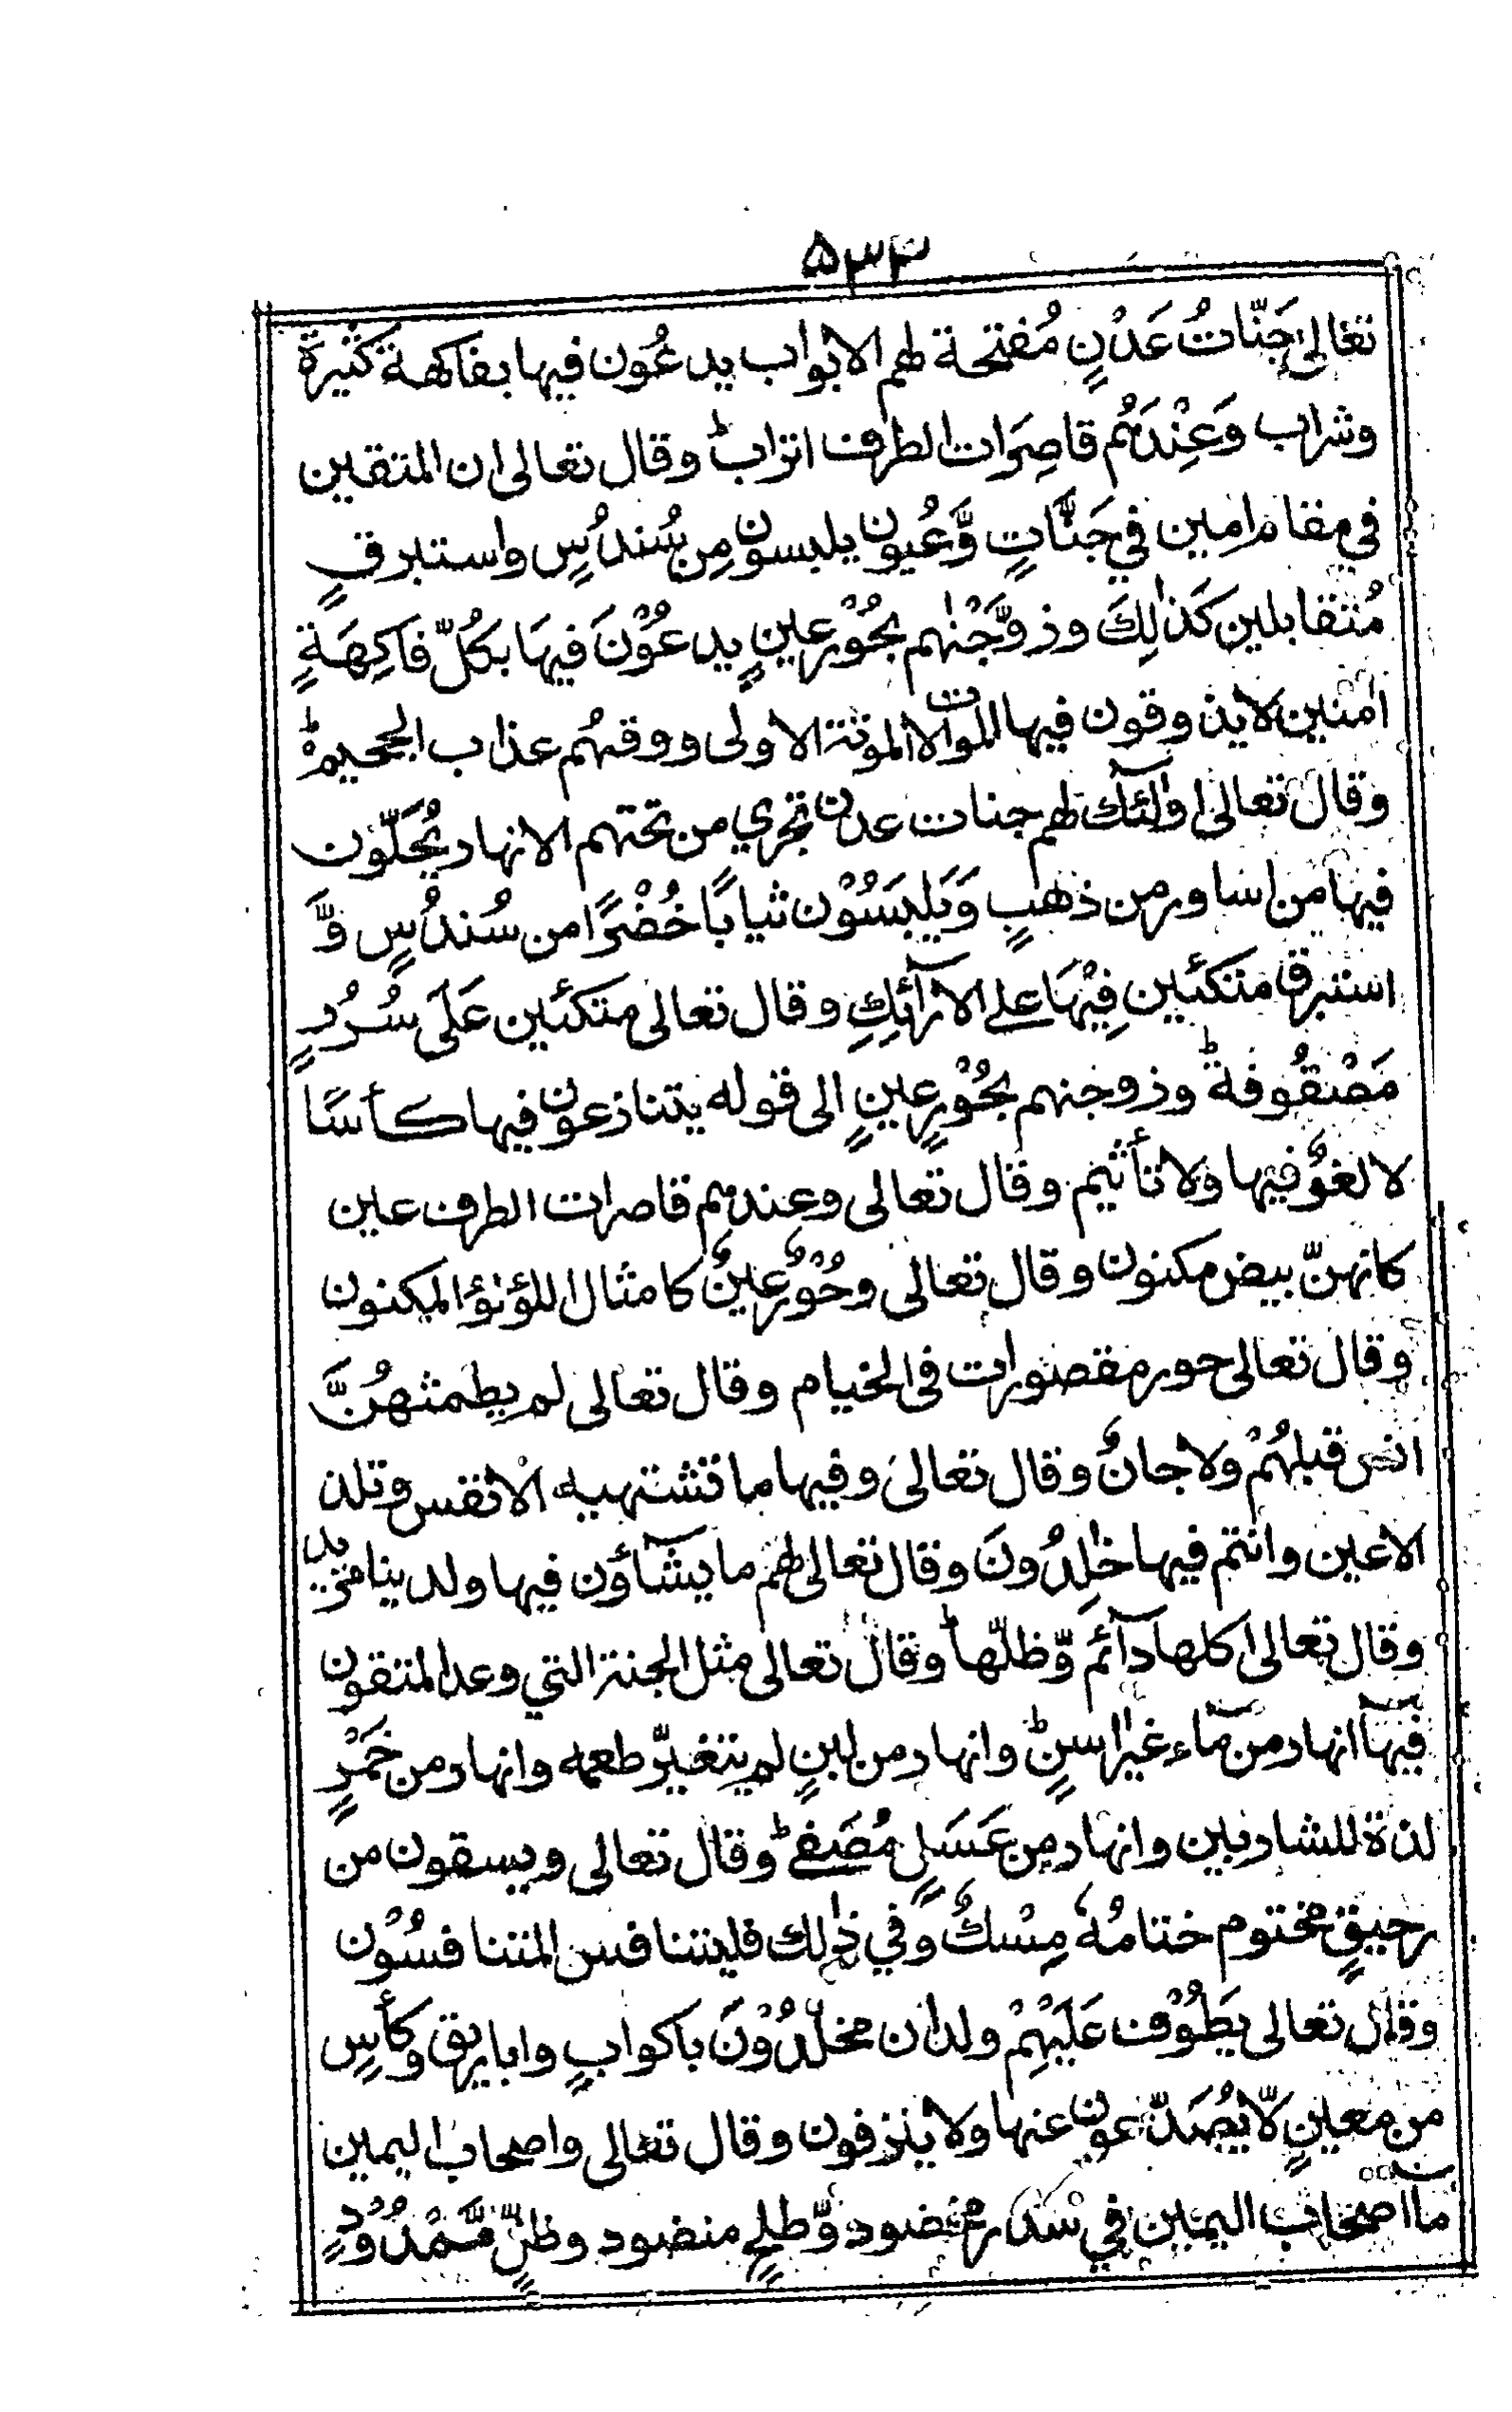 ۵۳۴
تعالى جَنّاتُ عَدْنٍ مُفتحة لهم الابواب يدعُون فيها بفاكهة كثيرة
وشراب وَعِنْدَهُم قاصِرَات الطرف اتراب ط وقال تعالى ان المتقين
في مقام امين في جَنَّاتٍ وَّعُيون يلبسون مِن سُندُسٍ واستبرقٍ
مُتقابلين كَذٰلِكَ وزوَّجْنٰهم بحُوْرٍ عينٍ يدعُوْنَ فيهَا بكُلّ فاكِهَةٍ
اٰمنين لا يذوقون فيها الموت الا الموتة الاولى ووقٰهُم عذاب الجحيم ط
وقال تعالى اولٰٓئك لهم جنات عدن تجري من تحتهم الانهار يُحَلَّون
فيها من اساور من ذهبٍ وَيَلبَسُوْن ثيابًا خُضْرًا من سُندُسٍ وَّ
استبرق متكئين فِيْهَا على الارآئِكِ وقال تعالى متكئين عَلَى سُرُرٍ
مَصْفُوفة ط وزوجنهم بحُوْرٍ عينٍ الى قوله يتنازعون فيها كأسًا
لا لغوٌ فيها ولا تأثيم وقال تعالى وعندهم قاصرات الطرف عين
كانهنّ بيض مكنون وقال تعالى وحُوْرٌ عينٌ كامثال اللؤلؤ المكنون
وقال تعالى حور مقصورات فى الخيام وقال تعالى لم يطمثهُنَّ
انس قبلهُمْ ولا جانٌ وقال تعالىٰ وفيها ما تشتهيه الانفس وتلذ
الاعين وانتم فيها خٰلِدُونَ وقال تعالى لهم ما يشآؤن فيها ولدينا مزيد
وقال تعالى اكلها دآئم وّظلّها ط وقال تعالى مثل الجنة التي وعد المتقون
فيهآ انهار من مّآء غير اٰسنٍ ط وانهار من لبنٍ لم يتغيّر طعمه وانهار من خَمْرٍ
لذة للشاربين وانهار من عَسَلٍ مُصَفى ط وقال تعالى ويسقون من
رحيقٍ مختوم ختامُهٗ مِسْكٌ وفي ذٰلك فليتنافس المتنافسُوْن
وقال تعالى يَطُوْف عَلَيْهِمْ ولدان مخلّدُوْنَ باكوابٍ واباريق وكأسٍ
من معينٍ لّا يُصَدّعون عنها ولا ينزفون وقال تعالى واصحاب اليمين
مآ اصحاب اليمين في سدرٍ مخضود وّطلحٍ منضود وظلٍّ مَّمْدُوْدٍ